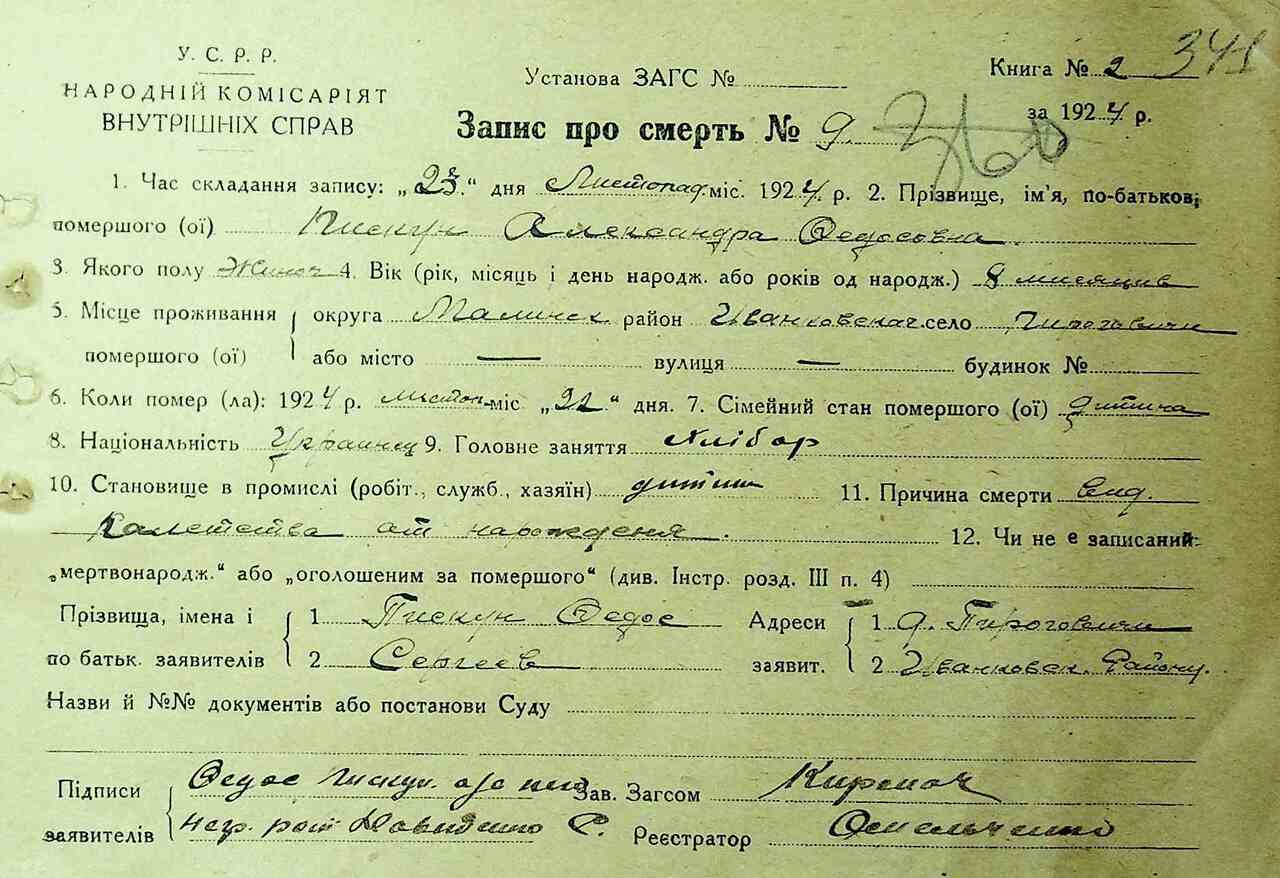 У. С. Р. Р.
НАРОДНІЙ КОМІСАРІЯТ
ВНУТРІШНІХ СПРАВ
Установа ЗАГС №
Книга № 2 341
за 1924 р.
Запис про смерть № 9.
1. Час складання запису: „23“ дня Листопад міс. 1924 р. 2. Прізвище, ім'я, по-батькові
помершого (ої) Пискун Александра Федосовна
3. Якого полу Жиноч 4. Вік (рік, місяць і день народж. або років од народж.) 8 мисяцив
5. Місце проживання округа Малинск район Иванковск село Пироговичи
помершого (ої) або місто — вулиця — будинок №
6. Коли помер (ла): 1924 р. листоп. міс „22“ дня. 7. Сімейний стан помершого (ої) дитина
8. Національність Украинец 9. Головне заняття Хлібор
10. Становище в промислі (робіт., служб., хазяїн) дитин 11. Причина смерти
калетства от нарождения. 12. Чи не є записаний:
„мертвонародж.“ або „оголошеним за помершого“ (див. Інстр. розд. III п. 4)
Прізвища, імена і 1 Пискун Федос Адреси 1 д. Пироговичи
по батьк. заявителів 2 Сергеев заявит. 2 Иванковск. Району.
Назви й №№ документів або постанови Суду
Підписи Федос Пискун. Зав. Загсом
заявителів Давиденко Реєстратор Омельченко